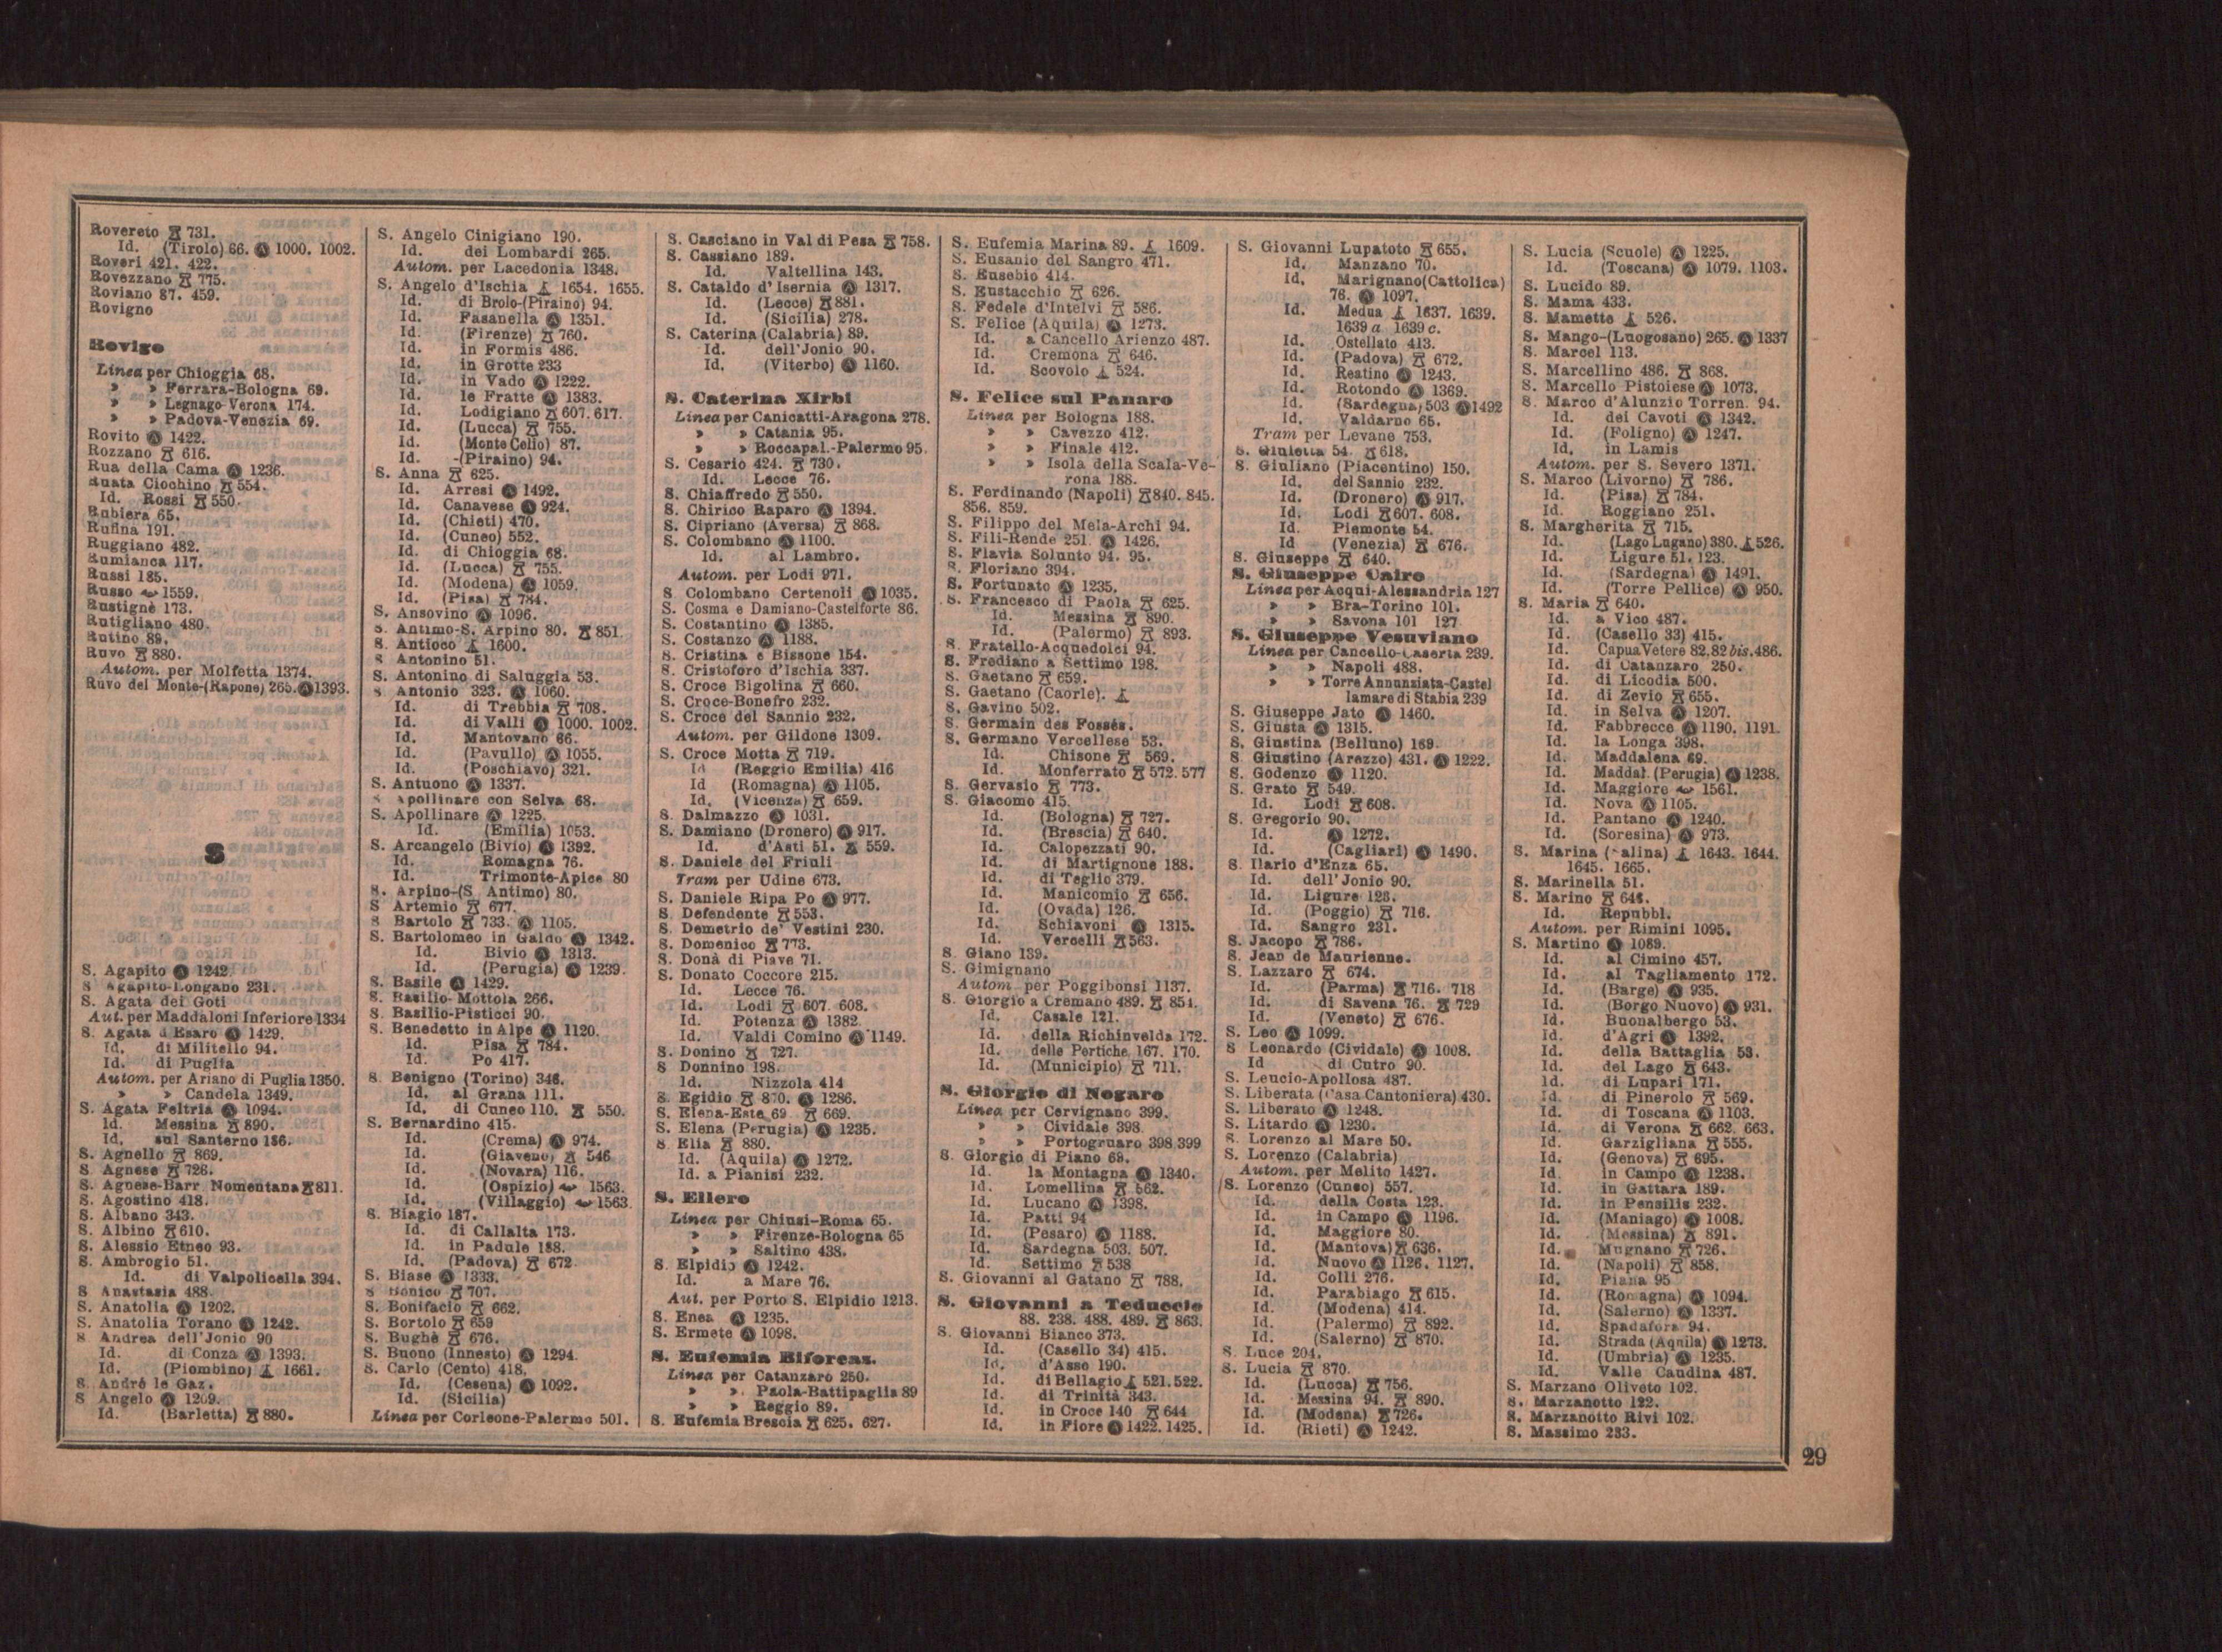 Rovereto 731.
Id. (Tirolo) 66. A 1000. 1002.
Roveri 421. 422.
Rovezzano 775.
Roviano 87. 459.
Rovigno
Rovigo
Linea per Chioggia 68.
» » Ferrara-Bologna 69.
» » Legnago-Verona 174.
» » Padova-Venezia 69.
Rovito A 1422.
Rozzano 616.
Rua della Cama A 1236.
Ruata Ciochino 554.
Id. Rossi 550.
Rubiera 65.
Rufina 191.
Ruggiano 482.
Rumianca 117.
Russi 185.
Russo 1559.
Rustignè 173.
Rutigliano 480.
Rutino 89.
Ruvo 880.
Autom. per Molfetta 1374.
Ruvo del Monte-(Rapone) 265. A 1393.
S
S. Agapito A 1242.
S Agapito-Longano 231.
S. Agata dei Goti
Aut. per Maddaloni Inferiore 1334
S. Agata d Esaro A 1429.
Id. di Militello 94.
Id. di Puglia
Autom. per Ariano di Puglia 1350.
» » Candela 1349.
S. Agata Feltria A 1094.
Id. Messina 890.
Id. sul Santerno 186.
S. Agnello 869.
S Agnese 726.
S. Agnese-Barr Nomentana 811.
S. Agostino 418.
S. Albano 343.
S. Albino 610.
S. Alessio Etneo 93.
S. Ambrogio 51.
Id. di Valpolicella 394.
S Anastasia 488.
S. Anatolia A 1202.
S. Anatolia Torano A 1242.
S Andrea dell'Jonio 90
Id. di Conza A 1393.
Id. (Piombino) 1661.
S. André le Gaz.
S Angelo A 1209.
Id. (Barletta) 880.
S. Angelo Cinigiano 190.
Id. dei Lombardi 265.
Autom. per Lacedonia 1348.
S. Angelo d'Ischia 1654. 1655.
Id. di Brolo-(Piraino) 94.
Id. Fasanella A 1351.
Id. (Firenze) 760.
Id. in Formis 486.
Id. in Grotte 233
Id. in Vado A 1222.
Id. le Fratte A 1383.
Id. Lodigiano 607. 617.
Id. (Lucca) 755.
Id. (Monte Celio) 87.
Id. -(Piraino) 94.
S. Anna 625.
Id. Arresi A 1492.
Id. Canavese A 924.
Id. (Chieti) 470.
Id. (Cuneo) 552.
Id. di Chioggia 68.
Id. (Lucca) 755.
Id. (Modena) A 1059.
Id. (Pisa) 784.
S. Ansovino A 1096.
S. Antimo-S. Arpino 80. 851.
S. Antioco 1600.
S Antonino 51.
S. Antonino di Saluggia 53.
S Antonio 323. A 1060.
Id. di Trebbia 708.
Id. di Valli A 1000. 1002.
Id. Mantovano 66.
Id. (Pavullo) A 1055.
Id. (Poschiavo) 321.
S. Antuono A 1337.
S Apollinare con Selva 68.
S. Apollinare A 1225.
Id. (Emilia) 1053.
S. Arcangelo (Bivio) A 1392.
Id. Romagna 76.
Id. Trimonte-Apice 80
S. Arpino-(S Antimo) 80.
S Artemio 677.
S Bartolo 733. A 1105.
S. Bartolomeo in Galdo A 1342.
Id. Bivio A 1313.
Id. (Perugia) A 1239.
S. Basile A 1429.
S. Basilio-Mottola 266.
S. Basilio-Pisticci 90.
S. Benedetto in Alpe A 1120.
Id. Pisa 784.
Id. Po 417.
S. Benigno (Torino) 346.
Id. al Grana 111.
Id. di Cuneo 110. 550.
S. Bernardino 415.
Id. (Crema) A 974.
Id. (Giaveno) 546
Id. (Novara) 116.
Id. (Ospizio) 1563.
Id. (Villaggio) 1563.
S. Biagio 187.
Id. di Callalta 173.
Id. in Padule 188.
Id. (Padova) 672.
S. Biase A 1333.
S Bonico 707.
S. Bonifacio 662.
S. Bortolo 659
S. Bughè 676.
S. Buono (Innesto) A 1294.
S. Carlo (Cento) 418.
Id. (Cesena) A 1092.
Id. (Sicilia)
Linea per Corleone-Palermo 501.
S. Casciano in Val di Pesa 758.
S. Cassiano 189.
Id. Valtellina 143.
S. Cataldo d'Isernia A 1317.
Id. (Lecce) 881.
Id. (Sicilia) 278.
S. Caterina (Calabria) 89.
Id. dell'Jonio 90.
Id. (Viterbo) A 1160.
S. Caterina Xirbi
Linea per Canicattì-Aragona 278.
» » Catania 95.
» » Roccapal.-Palermo 95.
S. Cesario 424. 730.
Id. Lecce 76.
S. Chiaffredo 550.
S. Chirico Raparo A 1394.
S. Cipriano (Aversa) 868.
S. Colombano A 1100.
Id. al Lambro.
Autom. per Lodi 971.
S Colombano Certenoli A 1035.
S. Cosma e Damiano-Castelforte 86.
S. Costantino A 1385.
S. Costanzo A 1188.
S. Cristina e Bissone 154.
S. Cristoforo d'Ischia 337.
S. Croce Bigolina 660.
S. Croce-Bonefro 232.
S. Croce del Sannio 232.
Autom. per Gildone 1309.
S. Croce Motta 719.
Id (Reggio Emilia) 416
Id (Romagna) A 1105.
Id. (Vicenza) 659.
S. Dalmazzo A 1031.
S. Damiano (Dronero) A 917.
Id. d'Asti 51. 559.
S. Daniele del Friuli
Tram per Udine 673.
S. Daniele Ripa Po A 977.
S. Defendente 553.
S. Demetrio de' Vestini 230.
S. Domenico 773.
S. Donà di Piave 71.
S. Donato Coccore 215.
Id. Lecce 76.
Id. Lodi 607. 608.
Id. Potenza A 1382
Id. Valdi Comino A 1149.
S. Donino 727.
S Donnino 198.
Id. Nizzola 414
S. Egidio 870. A 1286.
S. Elena-Este 69 669.
S. Elena (Perugia) A 1235.
S Elia 880.
Id. (Aquila) A 1272.
Id. a Pianisi 232.
S. Ellero
Linea per Chiusi-Roma 65.
» » Firenze-Bologna 65
» » Saltino 438.
S. Elpidio A 1242.
Id. a Mare 76.
Aut. per Porto S. Elpidio 1213.
S. Enea A 1235.
S. Ermete A 1098.
S. Eufemia Biforcaz.
Linea per Catanzaro 250.
» » Paola-Battipaglia 89
» » Reggio 89.
S. Eufemia Brescia 625. 627.
S. Eufemia Marina 89. 1609.
S. Eusanio del Sangro 471.
S. Eusebio 414.
S. Eustacchio 626.
S. Fedele d'Intelvi 586.
S. Felice (Aquila) A 1273.
Id. a Cancello Arienzo 487.
Id. Cremona 646.
Id. Scovolo 524.
S. Felice sul Panaro
Linea per Bologna 188.
» » Cavezzo 412.
» » Finale 412.
» » Isola della Scala-Ve-
rona 188.
S. Ferdinando (Napoli) 840. 845.
856. 859.
S. Filippo del Mela-Archi 94.
S. Fili-Rende 251. A 1426.
S. Flavia Solunto 94. 95.
S. Floriano 394.
S. Fortunato A 1235.
S. Francesco di Paola 625.
Id. Messina 890.
Id. (Palermo) 893.
S. Fratello-Acquedolci 94.
S. Frediano a Settimo 198.
S. Gaetano 659.
S. Gaetano (Caorle).
S. Gavino 502.
S. Germain des Fossés.
S. Germano Vercellese 53.
Id. Chisone 569.
Id. Monferrato 572. 577
S. Gervasio 773.
S. Giacomo 415.
Id. (Bologna) 727.
Id. (Brescia) 640.
Id. Calopezzati 90.
Id. di Martignone 188.
Id. di Teglio 379.
Id. Manicomio 656.
Id. (Ovada) 126.
Id. Schiavoni A 1315.
Id. Vercelli 563.
S Giano 139.
S. Gimignano
Autom per Poggibonsi 1137.
S. Giorgio a Cremano 489. 851.
Id. Casale 121.
Id. della Richinvelda 172.
Id. delle Pertiche 167. 170.
Id. (Municipio) 711.
S. Giorgio di Nogaro
Linea per Cervignano 399.
» » Cividale 398.
» » Portogruaro 398 399
S. Giorgio di Piano 69.
Id. la Montagna A 1340.
Id. Lomellina 562.
Id. Lucano A 1398.
Id. Patti 94
Id. (Pesaro) A 1188.
Id. Sardegna 503. 507.
Id. Settimo 538
S. Giovanni al Gatano 788.
S. Giovanni a Teduccio
88. 238. 488. 489. 863.
S. Giovanni Bianco 373.
Id. (Casello 34) 415.
Id. d'Asso 190.
Id. di Bellagio 521. 522.
Id. di Trinità 343.
Id. in Croce 140 644
Id. in Fiore A 1422. 1425.
S. Giovanni Lupatoto 655.
Id. Manzano 70.
Id. Marignano (Cattolica)
76. A 1097.
Id. Medua 1637. 1639.
1639 a 1639 c.
Id. Ostellato 413.
Id. (Padova) 672.
Id. Reatino A 1243.
Id. Rotondo A 1369.
Id. (Sardegna) 503 A 1492
Id. Valdarno 65.
Tram per Levane 753.
S. Giuletta 54. 618.
S. Giuliano (Piacentino) 150.
Id. del Sannio 232.
Id. (Dronero) A 917.
Id. Lodi 607. 608.
Id. Piemonte 54.
Id (Venezia) 676.
S. Giuseppe 640.
S. Giuseppe Cairo
Linea per Acqui-Alessandria 127
» » Bra-Torino 101.
» » Savona 101 127
S. Giuseppe Vesuviano
Linea per Cancello-Caserta 239.
» » Napoli 488.
» » Torre Annunziata-Castel
lamare di Stabia 239
S. Giuseppe Jato A 1460.
S. Giusta A 1315.
S. Giustina (Belluno) 169.
S Giustino (Arezzo) 431. A 1222.
S. Godenzo A 1120.
S. Grato 549.
Id. Lodi 608.
S. Gregorio 90.
Id. A 1272.
Id. (Cagliari) A 1490.
S. Ilario d'Enza 65.
Id. dell'Jonio 90.
Id. Ligure 123.
Id. (Poggio) 716.
Id. Sangro 231.
S. Jacopo 786.
S. Jean de Maurienne.
S. Lazzaro 674.
Id. (Parma) 716. 718
Id. di Savena 76. 729
Id. (Veneto) 676.
S. Leo A 1099.
S Leonardo (Cividale) A 1008.
Id di Cutro 90.
S. Leucio-Apollosa 487.
S. Liberata (Casa Cantoniera) 430.
S. Liberato A 1248.
S. Litardo A 1230.
S. Lorenzo al Mare 50.
S. Lorenzo (Calabria)
Autom. per Melito 1427.
S. Lorenzo (Cuneo) 557.
Id. della Costa 123.
Id. in Campo A 1196.
Id. Maggiore 80.
Id. (Mantova) 636.
Id. Nuovo A 1126. 1127.
Id. Colli 276.
Id. Parabiago 615.
Id. (Modena) 414.
Id. (Palermo) 892.
Id. (Salerno) 870.
S. Luce 204.
S. Lucia 870.
Id. (Lucca) 756.
Id. Messina 94. 890.
Id. (Modena) 726.
Id. (Rieti) A 1242.
S. Lucia (Scuole) A 1225.
Id. (Toscana) A 1079. 1103.
S. Lucido 89.
S. Mama 433.
S. Mamette 526.
S. Mango-(Luogosano) 265. A 1337
S. Marcel 113.
S. Marcellino 486. 868.
S. Marcello Pistoiese A 1073.
S. Marco d'Alunzio Torren. 94.
Id. dei Cavoti A 1342.
Id. (Foligno) A 1247.
Id. in Lamis
Autom. per S. Severo 1371.
S. Marco (Livorno) 786.
Id. (Pisa) 784.
Id. Roggiano 251.
S. Margherita 715.
Id. (Lago Lugano) 380. 526.
Id. Ligure 51. 123.
Id. (Sardegna) A 1491.
Id. (Torre Pellice) A 950.
S. Maria 640.
Id. a Vico 487.
Id. (Casello 33) 415.
Id. Capua Vetere 82. 82 bis. 486.
Id. di Catanzaro 250.
Id. di Licodia 500.
Id. di Zevio 655.
Id. in Selva A 1207.
Id. Fabbrecce A 1190. 1191.
Id. la Longa 398.
Id. Maddalena 69.
Id. Maddal. (Perugia) A 1238.
Id. Maggiore 1561.
Id. Nova A 1105.
Id. Pantano A 1240.
Id. (Soresina) A 973.
S. Marina (Salina) 1643. 1644.
1645. 1665.
S. Marinella 51.
S. Marino 646.
Id. Repubbl.
Autom. per Rimini 1095.
S. Martino A 1089.
Id. al Cimino 457.
Id. al Tagliamento 172.
Id. (Barge) A 935.
Id. (Borgo Nuovo) A 931.
Id. Buonalbergo 53.
Id. d'Agri A 1392.
Id. della Battaglia 53.
Id. del Lago 643.
Id. di Lupari 171.
Id. di Pinerolo 569.
Id. di Toscana A 1103.
Id. di Verona 662. 663.
Id. Garzigliana 555.
Id. (Genova) 695.
Id. in Campo A 1238.
Id. in Gattara 189.
Id. in Pensilis 232.
Id. (Maniago) A 1008.
Id. (Messina) 891.
Id. Mugnano 726.
Id. (Napoli) 858.
Id. Piana 95
Id. (Romagna) A 1094.
Id. (Salerno) A 1337.
Id. Spadafora 94.
Id. Strada (Aquila) A 1273.
Id. (Umbria) A 1235.
Id. Valle Caudina 487.
S. Marzano Oliveto 102.
S. Marzanotto 122.
S. Marzanotto Rivi 102.
S. Massimo 233.
29